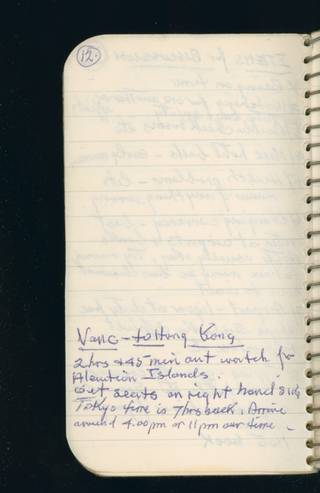 12.
Vanc - to Hong Kong
2 hrs + 45 min out watch for
Aleution Islands.
Get seats on right hand side
Tokyo time is 7 hrs back. Arrive
around 4.00 pm or 11 pm our time.